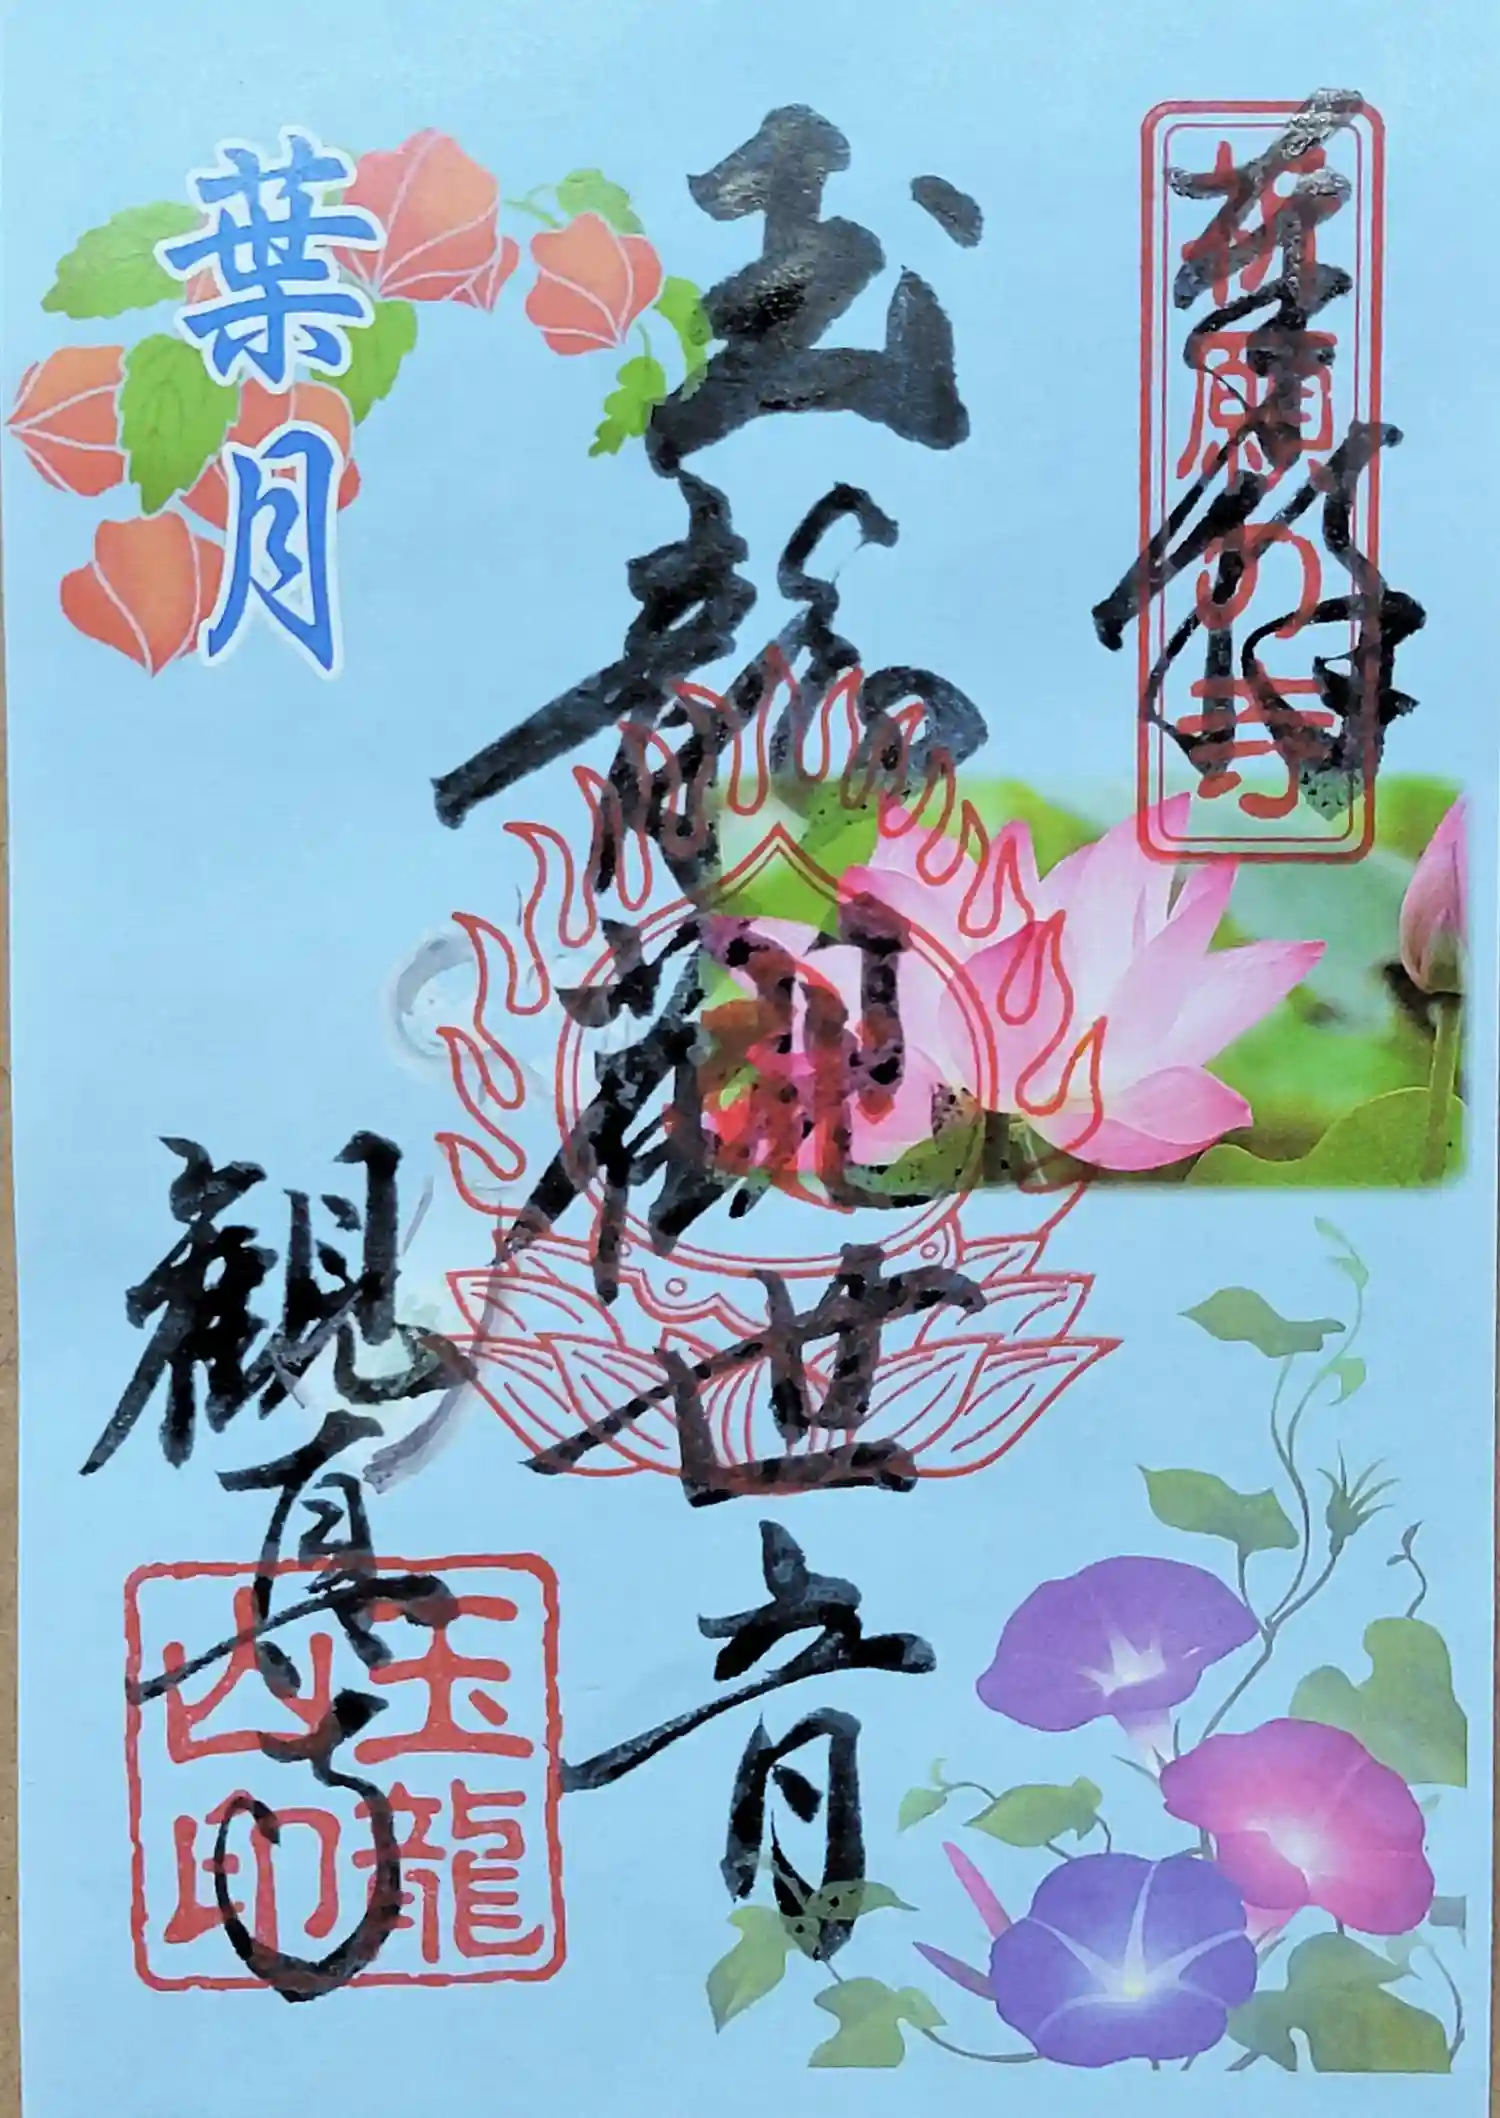 奉拝
祈願の寺
玉龍観世音
葉月
観真寺
玉龍山印